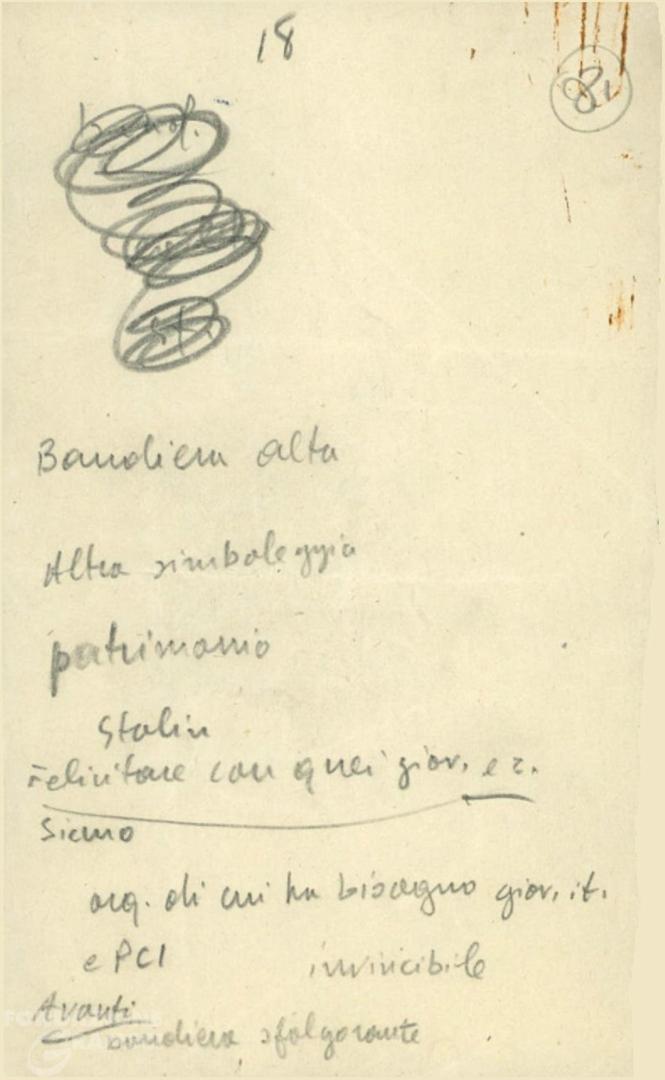 18
81
Bandiera alta
Altra simboleggia
patrimonio
Stalin
Felicitare con quei giov. e r.
Siamo
org. di cui ha bisogno giov. it.
e PCI invincibile
Avanti
bandiera sfolgorante